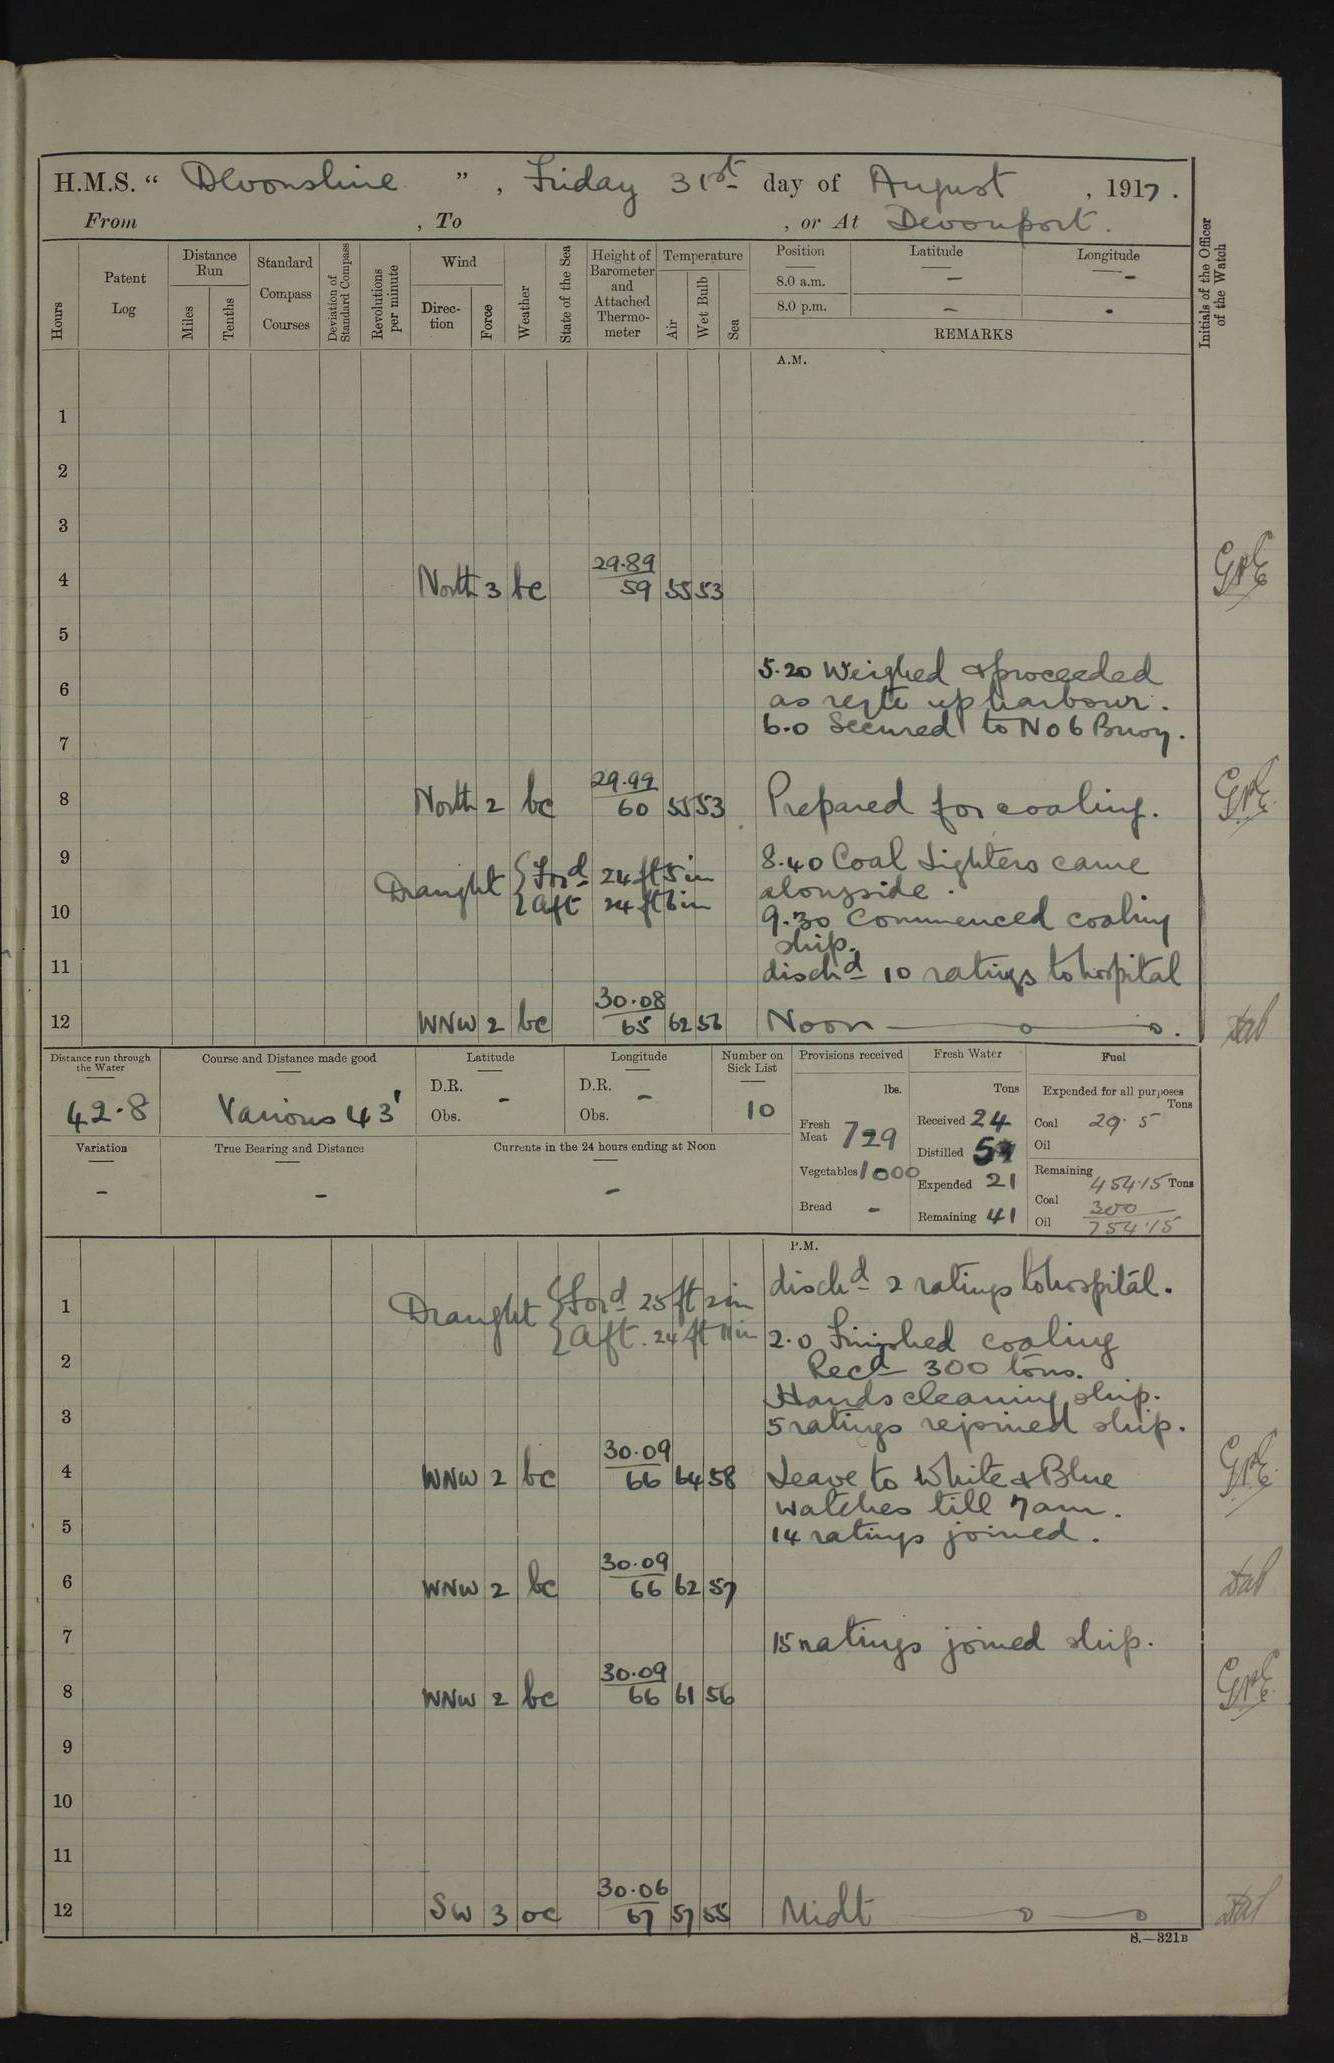 H.M.S. “ Devonshire ” , Friday 31st day of August , 1917 .
From , To , or At Devonport .
Hours
Patent Log
Distance Run
Miles
Tenths
Standard Compass Courses
Deviation of Standard Compass
Revolutions per minute
Wind
Direction
Force
Weather
State of the Sea
Height of Barometer and Attached Thermometer
Temperature
Air
Wet Bulb
Sea
Position Latitude Longitude
8.0 a.m. - -
8.0 p.m. - -
REMARKS
Initials of the Officer of the Watch
A.M.
1
2
3
29.89
4 North 3 bc 59 55 53
5
5.20 Weighed & proceeded
6
as reqte up harbour.
6.0 Secured to No 6 Buoy.
7
29.99
8 North 2 bc 60 55 53 Prepared for coaling.
9 8.40 Coal Lighters came
Draught { Ford 24 ft 5 in alongside.
{ Aft 24 ft 6 in
10 9.30 Commenced coaling
ship.
11 dischd 10 ratings to hospital
30.08
12 WNW 2 bc 65 62 56 Noon
Distance run through the Water
42.8
Course and Distance made good
Various 43'
Latitude
D.R. -
Obs.
Longitude
D.R. -
Obs.
Number on Sick List
10
Provisions received
lbs.
Fresh Meat 729
Vegetables 1000
Bread -
Fresh Water
Tons
Received 24
Distilled
Expended 21
Remaining 41
Fuel
Expended for all purposes
Tons
Coal 29.5
Oil
Remaining
454.15 Tons
Coal 300
Oil 754.15
Variation
-
True Bearing and Distance
-
Currents in the 24 hours ending at Noon
-
P.M.
dischd 2 ratings to hospital.
1 Draught { Ford 25 ft 2 in
{ Aft. 24 ft 11 in 2.0 Finished coaling
2 Recd 300 tons.
Hands cleaning ship.
3 5 ratings rejoined ship.
30.09
4 WNW 2 bc 66 64 58 Leave to White & Blue
watches till 7 am.
5 14 ratings joined.
30.09
6 WNW 2 bc 66 62 57
7 15 ratings joined ship.
30.09
8 WNW 2 bc 66 61 56
9
10
11
30.06
12 SW 3 oc 67 57 55 Midt
S.—321B